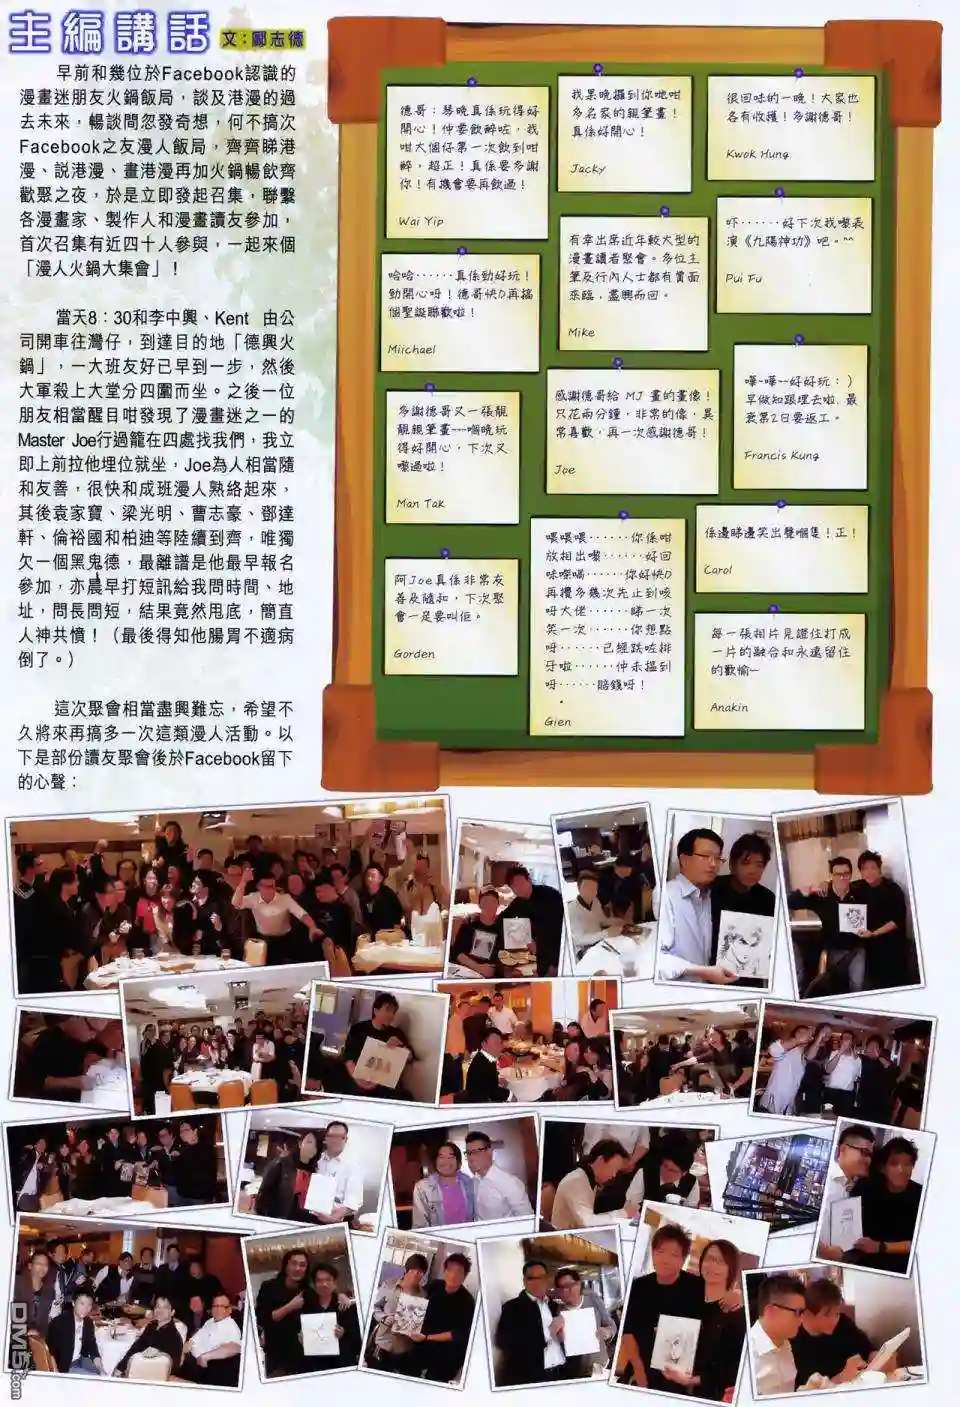 主編講話
文：鄺志德
早前和幾位於Facebook認識的
漫畫迷朋友火鍋飯局，談及港漫的過
去未來，暢談間忽發奇想，何不搞次
Facebook之友漫人飯局，齊齊睇港
漫、説港漫、畫港漫再加火鍋暢飲齊
歡聚之夜，於是立即發起召集，聯繫
各漫畫家、製作人和漫畫讀友參加，
首次召集有近四十人參與，一起來個
「漫人火鍋大集會」！
當天8：30和李中興、Kent 由公
司開車往灣仔，到達目的地「德興火
鍋」，一大班友好已早到一步，然後
大軍殺上大堂分四圍而坐。之後一位
朋友相當醒目咁發現了漫畫迷之一的
Master Joe行過籠在四處找我們，我立
即上前拉他埋位就坐，Joe為人相當隨
和友善，很快和成班漫人熟絡起來，
其後袁家寶、梁光明、曹志豪、鄧達
軒、倫裕國和柏迪等陸續到齊，唯獨
欠一個黑鬼德，最離譜是他最早報名
參加，亦晨早打短訊給我問時間、地
址，問長問短，結果竟然甩底，簡直
人神共憤！（最後得知他腸胃不適病
倒了。）
這次聚會相當盡興難忘，希望不
久將來再搞多一次這類漫人活動。以
下是部份讀友聚會後於Facebook留下
的心聲：
德哥：琴晚真係玩得好
開心！仲要飲醉咗，我
咁大個仔第一次飲到咁
醉，超正！真係要多謝
你！有機會要再飲過！
Wai Yip
我果晚攞到你哋咁
多名家的親筆畫！
真係好開心！
Jacky
很回味的一晚！大家也
各有收穫！多謝德哥！
Kwok Hung
哈哈‥‥‥真係勁好玩！
勁開心呀！德哥快D再搞
個聖誕聯歡啦！
Miichael
有幸出席近年較大型的
漫畫讀者聚會。多位主
筆及行內人士都有賞面
來臨，盡興而回。
Mike
吓‥‥‥好下次我嚟表
演《九陽神功》吧。^^
Pui Fu
多謝德哥又一張靚
靚親筆畫~~~嗰晚玩
得好開心，下次又
嚟過啦！
Man Tak
感謝德哥給 MJ 畫的畫像！
只花兩分鐘，非常的像，異
常喜歡，再一次感謝德哥！
Joe
嘩~嘩~~好好玩：）
早做知跟埋去啦，最
衰第2日要返工。
Francis Kung
阿Joe真係非常友
善及隨和，下次聚
會一定要叫佢。
Gorden
喂喂喂‥‥‥你係咁
放相出嚟‥‥‥好回
味㗎喎‥‥‥你好快D
再攪多幾次先止到咳
呀大佬‥‥‥睇一次
笑一次‥‥‥你想點
呀‥‥‥已經跌咗排
牙啦‥‥‥仲未搵到
呀‥‥‥賠錢呀！
Gien
係邊睇邊笑出聲嗰隻！正！
Carol
每一張相片見證住打成
一片的融合和永遠留住
的歡愉~
Anakin
DM5.com